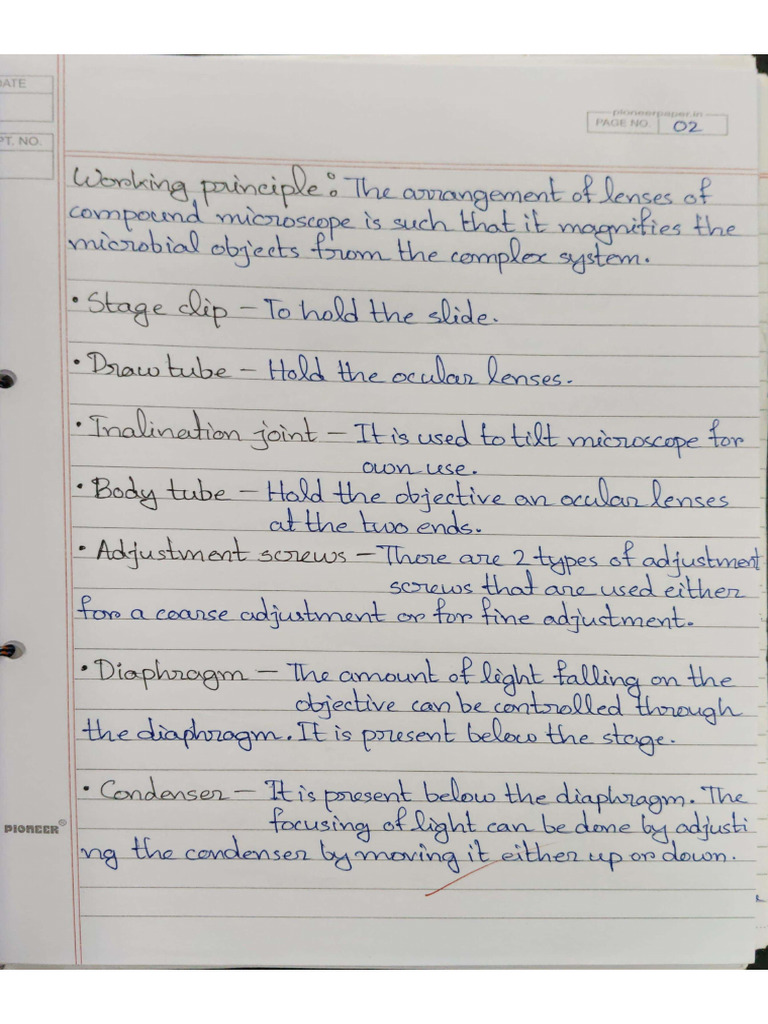 DATE
PT. NO.
pioneerpaper.in
PAGE NO. 02
Working principle: The arrangement of lenses of
compound microscope is such that it magnifies the
microbial objects from the complex system.
• Stage clip – To hold the slide.
• Draw tube – Hold the ocular lenses.
• Inalination joint – It is used to tilt microscope for
own use.
• Body tube – Hold the objective an ocular lenses
at the two ends.
• Adjustment screws – There are 2 types of adjustment
screws that are used either
for a coarse adjustment or for fine adjustment.
• Diaphragm – The amount of light falling on the
objective can be controlled through
the diaphragm. It is present below the stage.
• Condenser – It is present below the diaphragm. The
focusing of light can be done by adjusti
PIONEER®
ng the condenser by moving it either up or down.